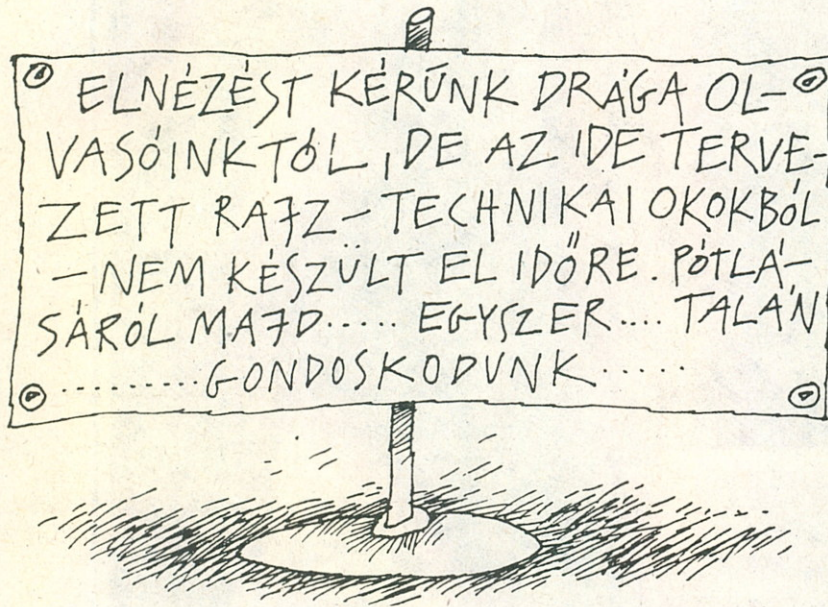 ELNÉZÉST KÉRÜNK DRÁGA OL-
VASÓINKTÓL, DE AZ IDE TERVE-
ZETT RAJZ - TECHNIKAI OKOKBÓL
- NEM KÉSZÜLT EL IDŐRE. PÓTLÁ-
SÁRÓL MAJD..... EGYSZER.... TALÁN
.........GONDOSKODUNK.....